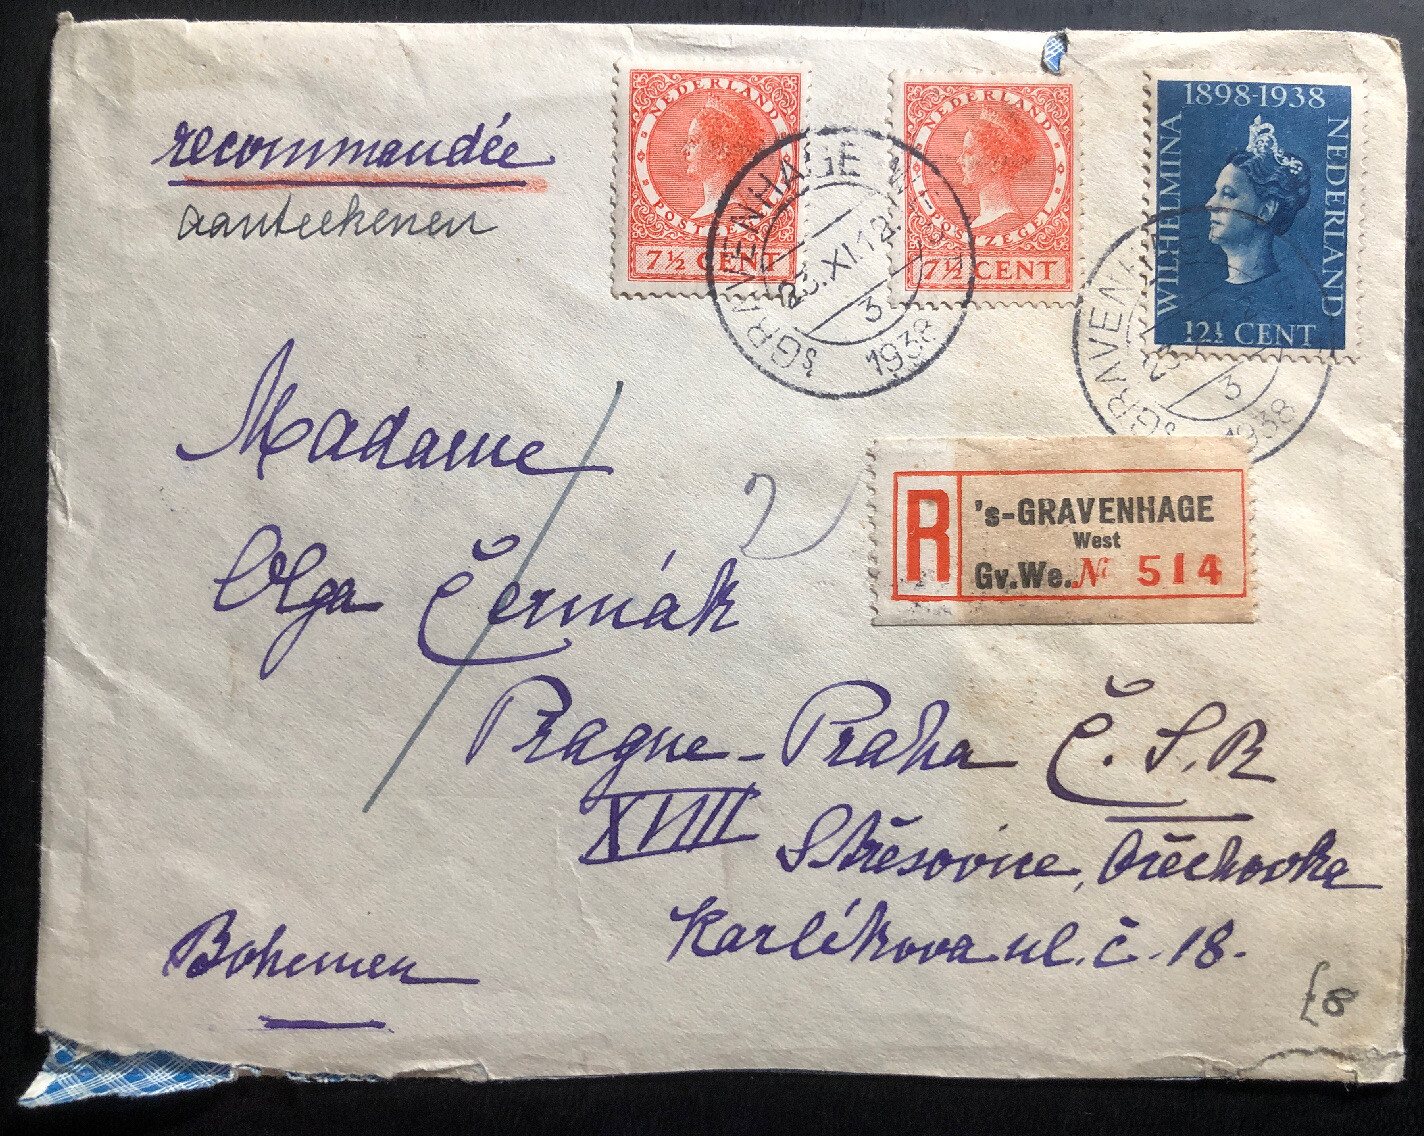 recommandée
aanteekenen
NEDERLAND
POSTZEGEL
7½ CENT
NEDERLAND
POSTZEGEL
7½ CENT
1898-1938
WILHELMINA
NEDERLAND
12½ CENT
'sGRAVENHAGE
23.XI.12
3
1938
'sGRAVENHAGE
23
3
1938
R
's-GRAVENHAGE
West
Gv.We. Nº 514
Madame
Olga Čermák
Prague - Praha Č.S.R
XVIII
Střešovice, Ořechovka
Karlíkova ul. č. 18.
Bohemen
£8